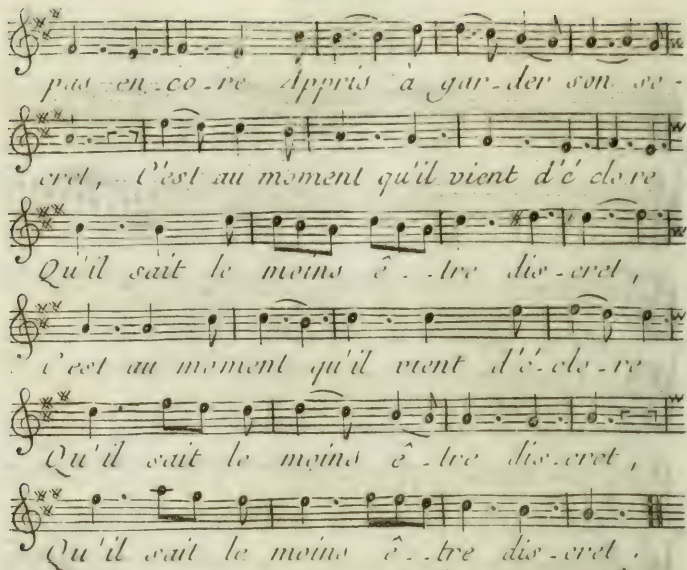 pas en-co-re Appris à gar-der son se-
cret, C'est au moment qu'il vient d'é clo re
Qu'il sait le moins ê-tre dis-cret,
C'est au moment qu'il vient d'é-clo-re
Qu'il sait le moins ê-tre dis-cret,
Qu'il sait le moins ê-tre dis-cret.